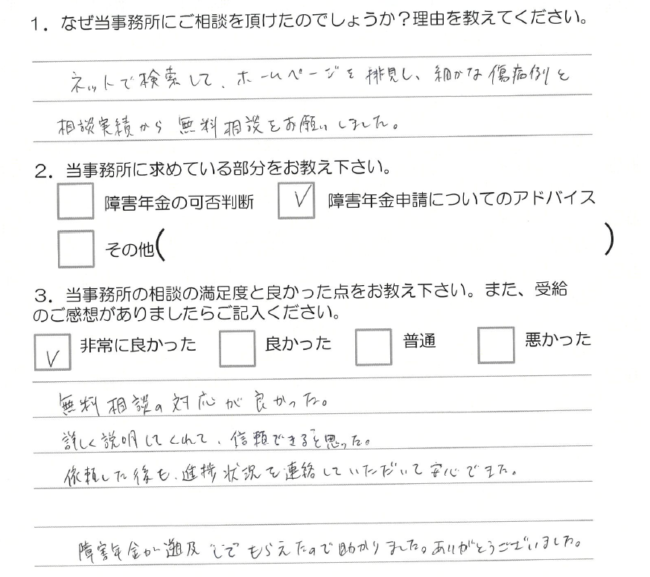 1．なぜ当事務所にご相談を頂けたのでしょうか？理由を教えてください。
ネットで検索して、ホームページを拝見し、細かな傷病例と
相談実績から無料相談をお願いしました。
2．当事務所に求めている部分をお教え下さい。
障害年金の可否判断 V 障害年金申請についてのアドバイス
その他( )
3．当事務所の相談の満足度と良かった点をお教え下さい。また、受給
のご感想がありましたらご記入ください。
V 非常に良かった 良かった 普通 悪かった
無料相談の対応が良かった。
詳しく説明してくれて、信頼できると思った。
依頼した後も、進捗状況を連絡していただいて安心できた。
障害年金が遡及してもらえたので助かりました。ありがとうございました。